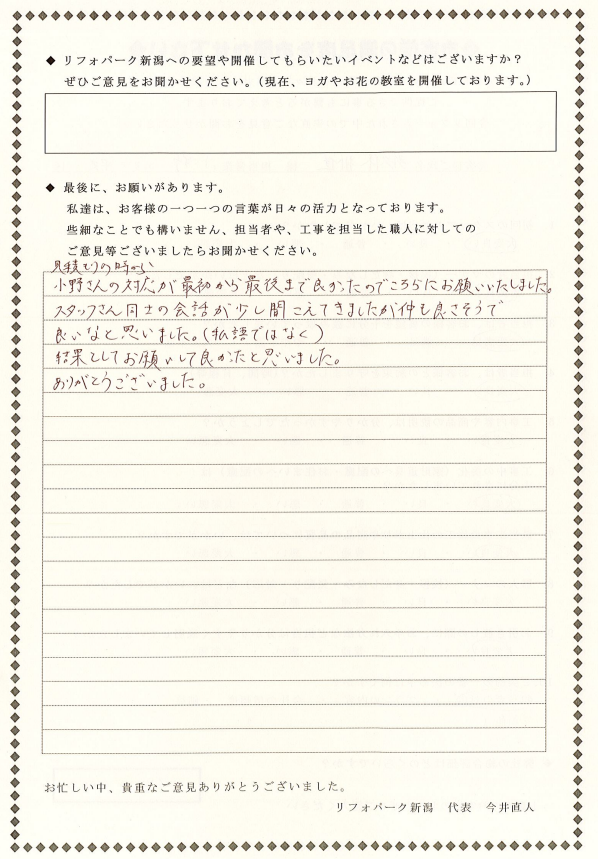 ◆ リフォパーク新潟への要望や開催してもらいたいイベントなどはございますか？
ぜひご意見をお聞かせください。（現在、ヨガやお花の教室を開催しております。）
◆ 最後に、お願いがあります。
私達は、お客様の一つ一つの言葉が日々の活力となっております。
些細なことでも構いません、担当者や、工事を担当した職人に対しての
ご意見等ございましたらお聞かせください。
見積もりの時から
小野さんの対応が最初から最後まで良かったのでこちらにお願いいたしました。
スタッフさん同士の会話が少し聞こえてきましたが仲も良さそうで
良いなと思いました。(私語ではなく)
結果としてお願いして良かったと思いました。
ありがとうございました。
お忙しい中、貴重なご意見ありがとうございました。
リフォパーク新潟　代表　今井直人